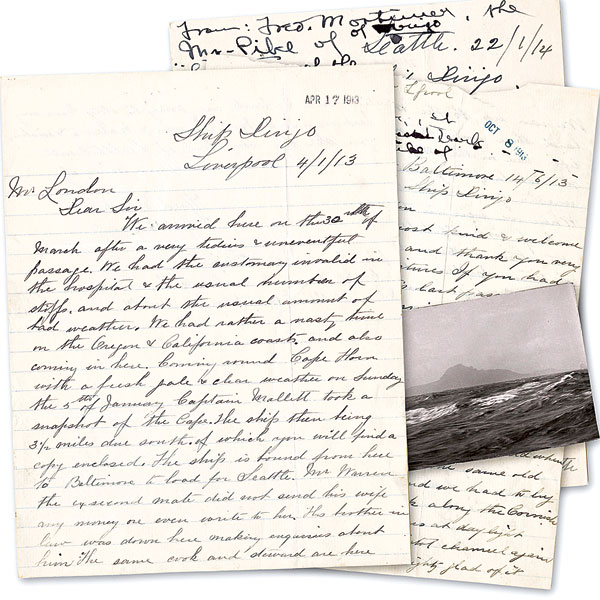 from: Fred. Mortimer, the
Mr. Pike of Seattle. 22/1/14
Dirigo.
APR 17 1913
Ship Dirigo
Liverpool 4/1/13
Mr London
Dear Sir
We arrived here on the 30 of
March after a very tedious & uneventful
passage. We had the customary invalid in
the hospital & the usual number of
stiffs. and about the usual amount of
bad weather. We had rather a nasty time
on the Oregon & California coast. and also
coming in here. Coming round Cape Horn
with a fresh gale & clear weather on Sunday
the 5th of January Captain Mallett took a
snapshot of the Cape. The ship then being
3½ miles due south. of which you will find a
copy enclosed. The ship is bound from here
to Baltimore to load for Seattle. Mr Warren
the ex second mate did not send his wife
any money or even write to her. His brother in
law was down here making enquiries about
him. The same cook and steward are here
OCT 8 1913
Baltimore 14/6/13
Ship Dirigo
most kind & welcome
and thank you very
If you had
last pas
same old
and we had to lay
along the Cornish
at daylight
channel again
glad of it